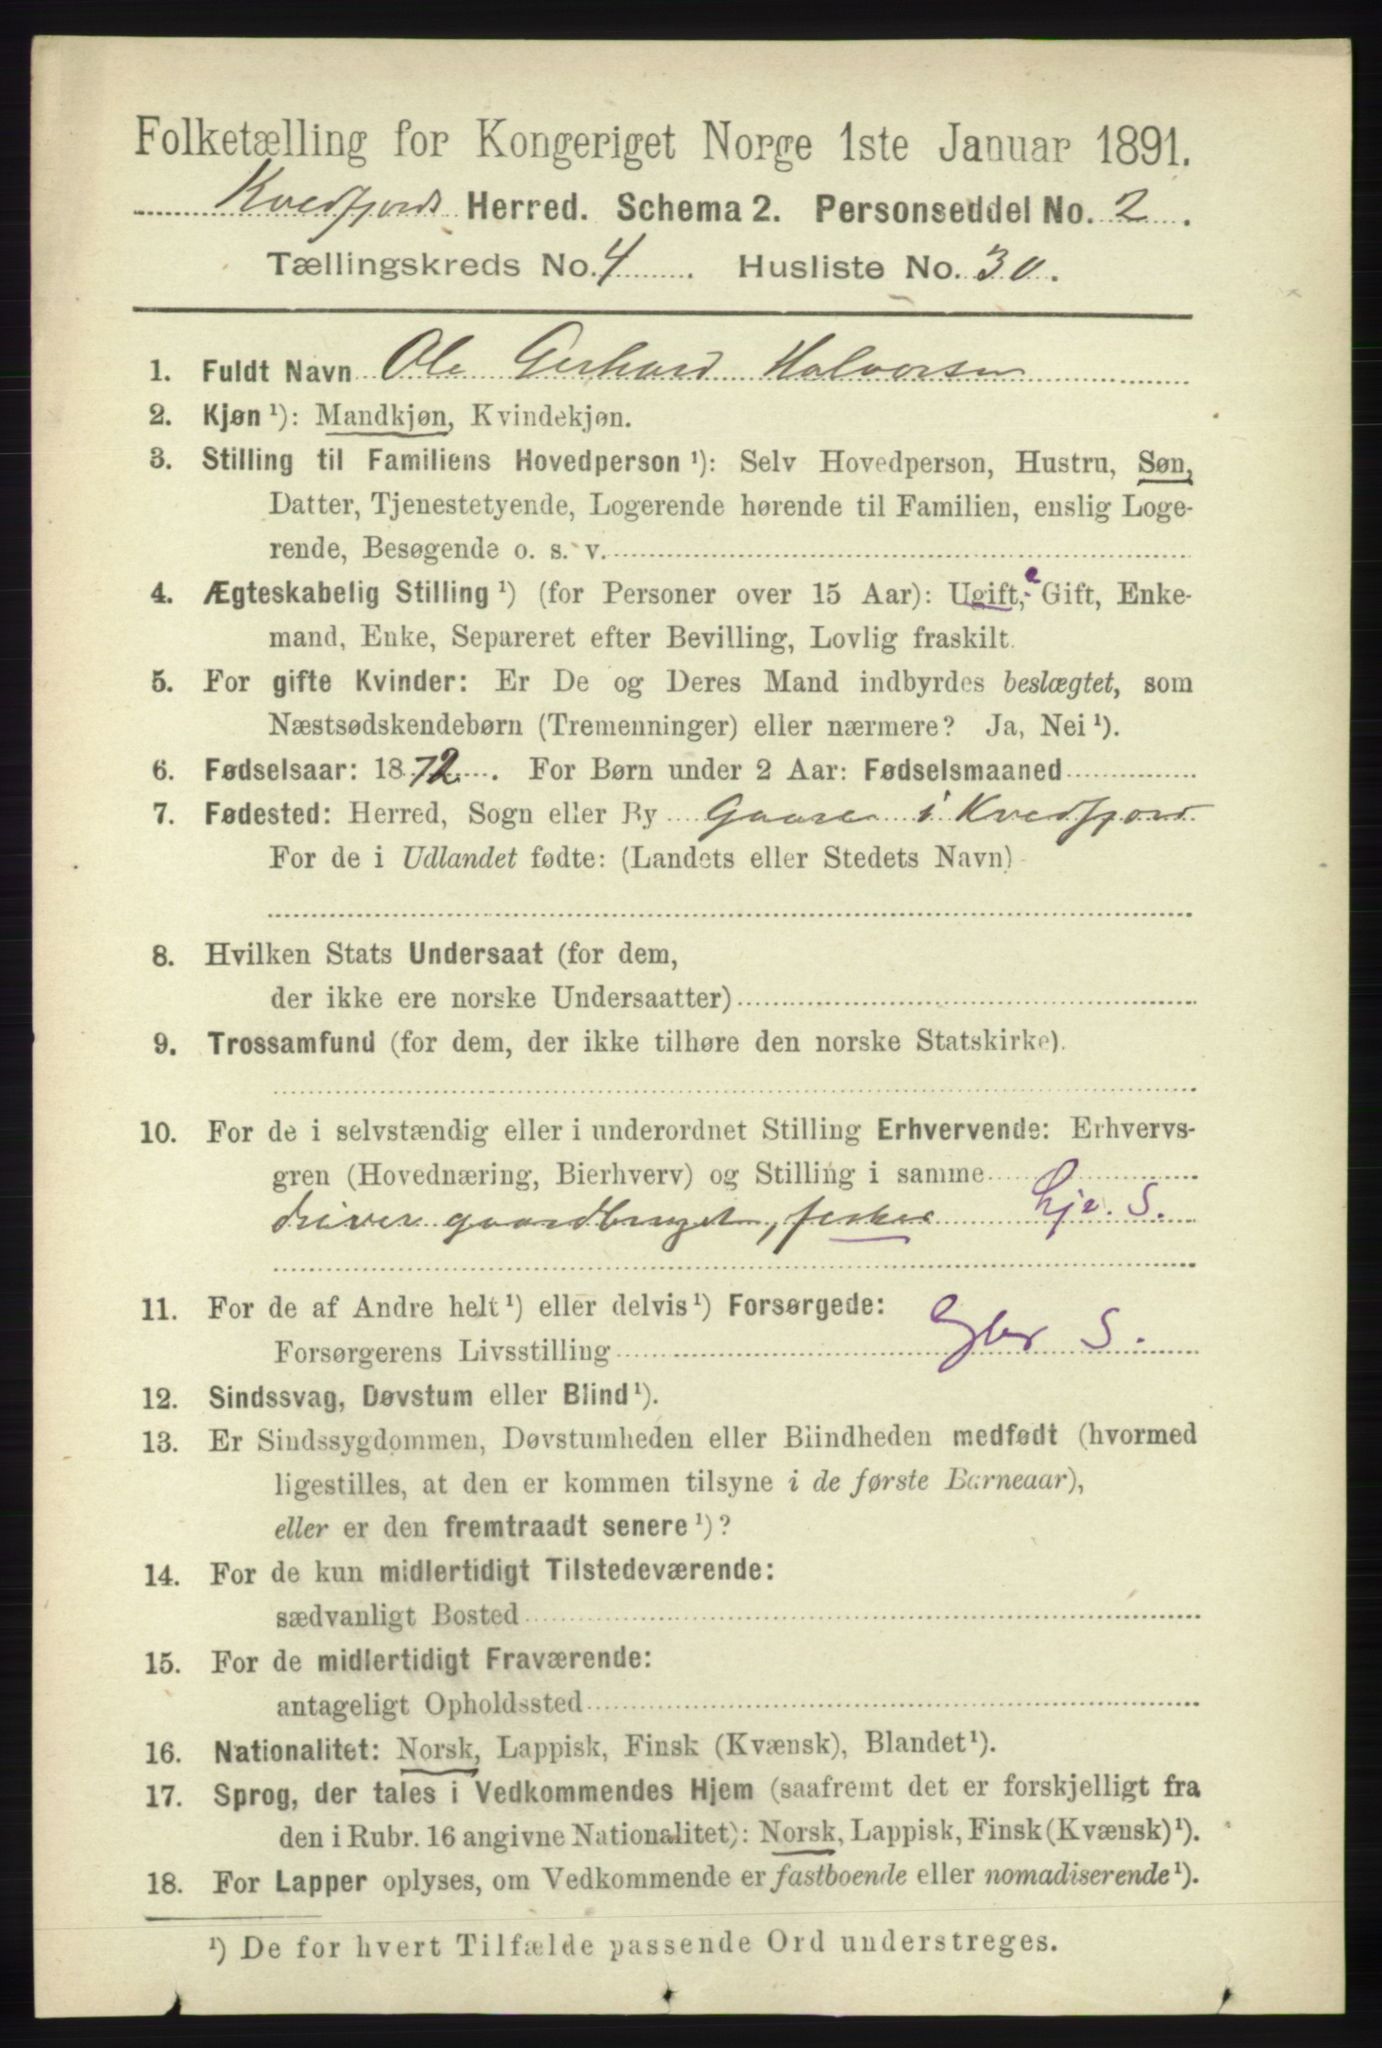 Folketælling for Kongeriget Norge 1ste Januar 1891.
Kvedfjords Herred. Schema 2. Personseddel No. 2.
Tællingskreds No. 4. Husliste No. 30.
1. Fuldt Navn Ole Gerhard Halvorsen
2. Kjøn ¹): Mandkjøn, Kvindekjøn.
3. Stilling til Familiens Hovedperson ¹): Selv Hovedperson, Hustru, Søn,
Datter, Tjenestetyende, Logerende hørende til Familien, enslig Loge-
rende, Besøgende o. s. v.
4. Ægteskabelig Stilling ¹) (for Personer over 15 Aar): Ugift, Gift, Enke-
mand, Enke, Separeret efter Bevilling, Lovlig fraskilt.
5. For gifte Kvinder: Er De og Deres Mand indbyrdes beslægtet, som
Næstsødskendebørn (Tremenninger) eller nærmere? Ja, Nei ¹).
6. Fødselsaar: 1872. For Børn under 2 Aar: Fødselsmaaned
7. Fødested: Herred, Sogn eller By Gaare i Kvedfjord
For de i Udlandet fødte: (Landets eller Stedets Navn)
8. Hvilken Stats Undersaat (for dem,
der ikke ere norske Undersaatter)
9. Trossamfund (for dem, der ikke tilhøre den norske Statskirke).
10. For de i selvstændig eller i underordnet Stilling Erhvervende: Erhvervs-
gren (Hovednæring, Bierhverv) og Stilling i samme
driver gaardbruget, fisker hje. S.
11. For de af Andre helt ¹) eller delvis ¹) Forsørgede:
Forsørgerens Livsstilling S.
12. Sindssvag, Døvstum eller Blind ¹).
13. Er Sindssygdommen, Døvstumheden eller Blindheden medfødt (hvormed
ligestilles, at den er kommen tilsyne i de første Barneaar),
eller er den fremtraadt senere ¹)?
14. For de kun midlertidigt Tilstedeværende:
sædvanligt Bosted
15. For de midlertidigt Fraværende:
antageligt Opholdssted
16. Nationalitet: Norsk, Lappisk, Finsk (Kvænsk), Blandet ¹).
17. Sprog, der tales i Vedkommendes Hjem (saafremt det er forskjelligt fra
den i Rubr. 16 angivne Nationalitet): Norsk, Lappisk, Finsk (Kvænsk) ¹).
18. For Lapper oplyses, om Vedkommende er fastboende eller nomadiserende ¹).
¹) De for hvert Tilfælde passende Ord understreges.